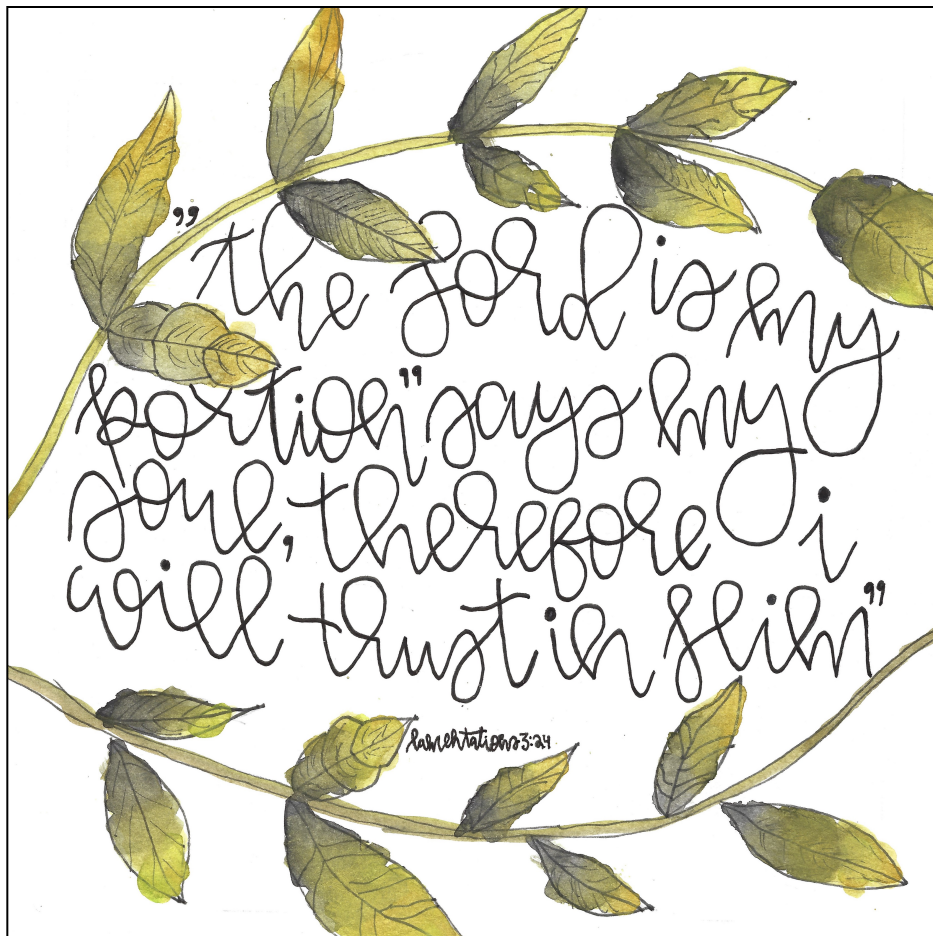 "the Lord is my
portion" says my
soul, therefore i
will trust in Him"
lamentations 3:24